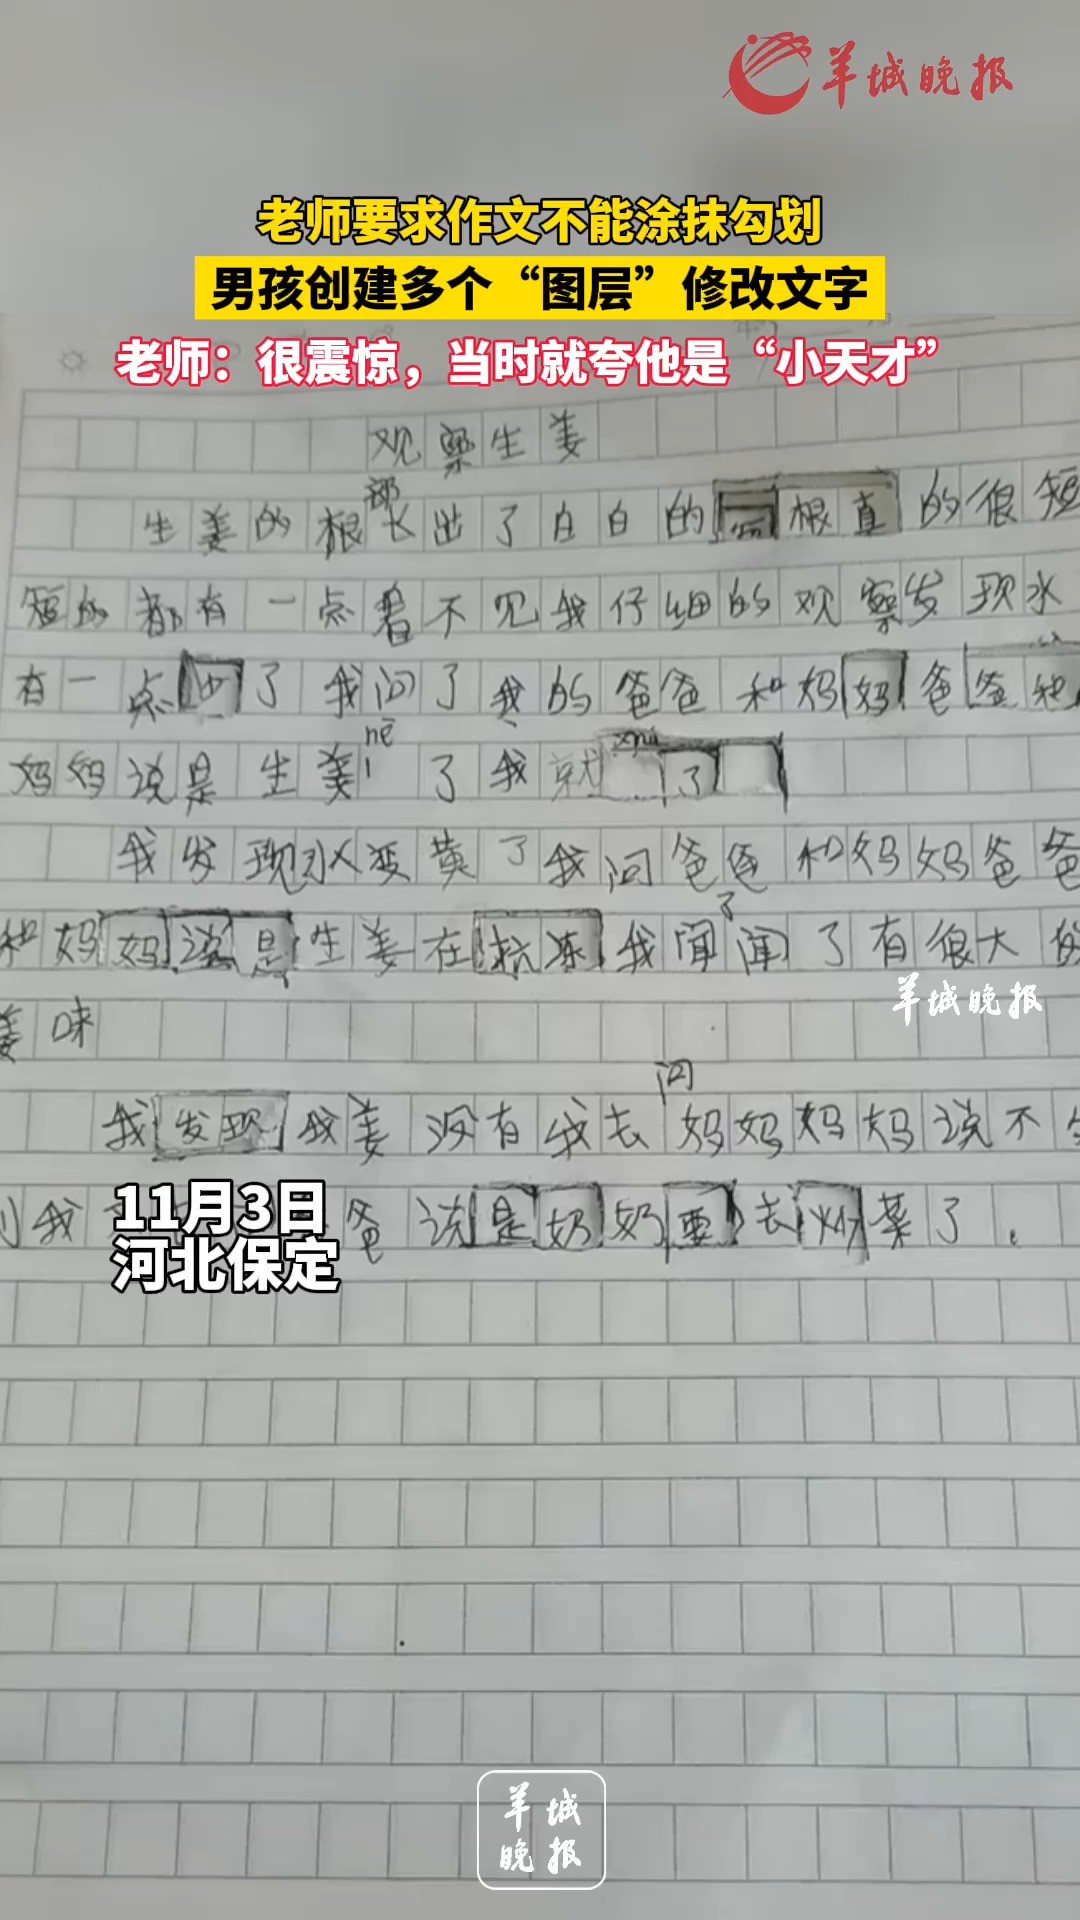 羊城晚报
老师要求作文不能涂抹勾划
男孩创建多个“图层”修改文字
老师：很震惊，当时就夸他是“小天才”
观察生姜
部
生姜的根长出了白白的根真的很短
短的都有一点看不见我仔细的观察发现水
有一点了我问了我的爸爸和妈妈爸爸和
nē
妈妈说是生姜了我就了
我发现水变黄了我问爸爸和妈妈爸爸
了
和妈妈说是生姜在抗冻我闻闻了有很大的
羊城晚报
姜味
问
我发现我姜没有我去妈妈妈妈说不
11月3日
我爸说是奶奶要去炒菜了。
河北保定
羊城
晚报